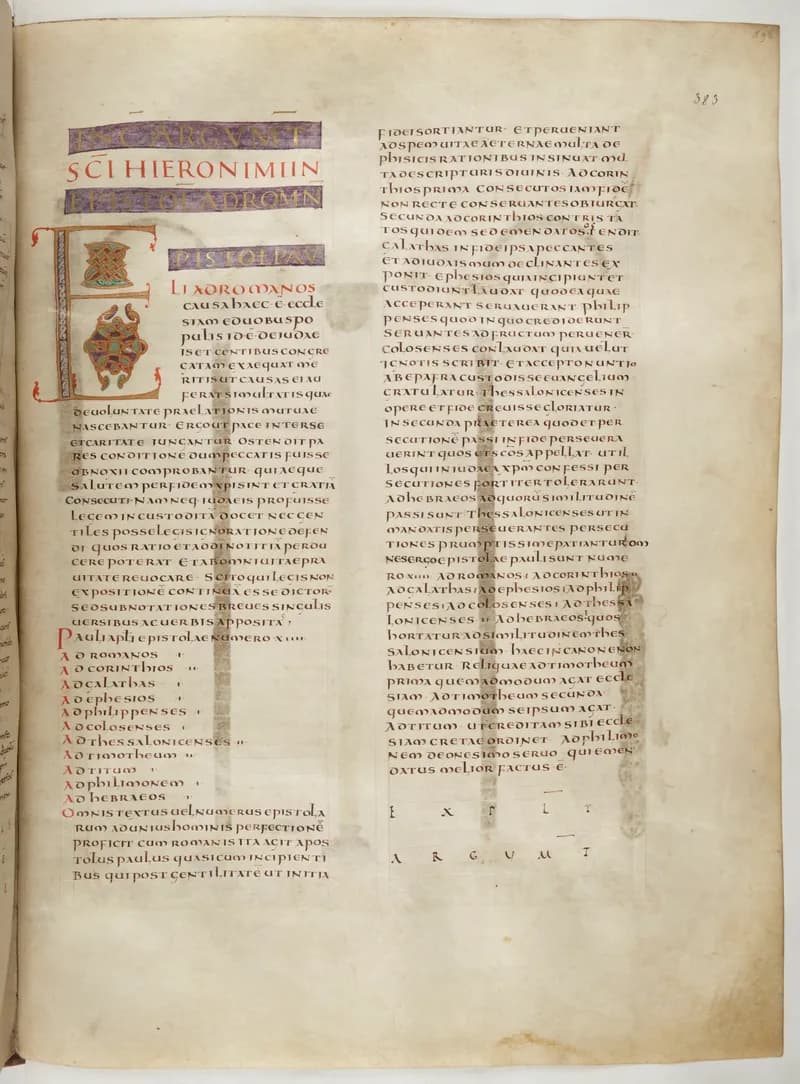 383
INC ARGVMT
SCI HIERONIMI IN
EPISTOLA AD ROMN
E
PISTOL PAV
LI AD ROMANOS
CAUSA HAEC E ECCLE
SIAM E DUOBUS PO
PULIS ID E DE IUDAE
IS ET GENTIBUS CONGRE
GATAM EXAEQUAT ME
RITIS UT CAUSAS EI AU
FERAT SIMULTATIS QUAE
DE UOLUNTATE PRAELATIONIS MUTUAE
NASCEBANTUR ERGO UT PACE INTER SE
ET CARITATE IUNGANTUR OSTENDIT PA
RES CONDITIONE DUM PECCATIS FUISSE
OBNOXII COMPROBANTUR QUI AEQUE
SALUTEM PER FIDEM XPI SINT ET GRATIA
CONSECUTI NAM NEQ IUDAEIS PROFUISSE
LEGEM INCUSTODITA DOCET NEC GEN
TILES POSSE LEGIS IGNORATIONE DEFEN
DI QUOS RATIO ET AD DI NOTITIA PERDU
CERE POTERAT ET AB OMNI UITAE PRA
UITATE REUOCARE SCITO QUI LEGIS NON
EXPOSITIONE CONTINUA ESSE DICTOR
SED SUBNOTATIONES BREUES SINGULIS
UERSIBUS AC UERBIS APPOSITA
PAULI APLI EPISTOLAE NUMERO XIIII
AD ROMANOS I
AD CORINTHIOS II
AD GALATHAS I
AD EPHESIOS I
AD PHILIPPENSES I
AD COLOSENSES I
AD THESSALONICENSES II
AD TIMOTHEUM II
AD TITUM I
AD PHILIMONEM I
AD HEBRAEOS I
OMNIS TEXTUS UEL NUMERUS EPISTOLA
RUM AD UNIUS HOMINIS PERFECTIONE
PROFICIT CUM ROMANIS ITA AGIT APOS
TOLUS PAULUS QUASI CUM INCIPIENTI
BUS QUI POST GENTILITATE UT INITIA
FIDEI SORTIANTUR ET PERUENIANT
AD SPEM UITAE AETERNAE MULTA DE
PHISICIS RATIONIBUS INSINUAT MUL
TA DE SCRIPTURIS DIUINIS AD CORIN
THIOS PRIMA CONSECUTOS IAM FIDE
NON RECTE CONSERUANTES OBIURGAT
SECUNDA AD CORINTHIOS CONTRISTA
TOS QUIDEM SED EMENDATOS OSTENDIT
GALATHAS IN FIDE IPSA PECCANTES
ET AD IUDAISMUM DECLINANTES EX
PONIT EPHESIOS QUIA INCIPIUNT ET
CUSTODIUNT LAUDAT QUOD EA QUAE
ACCEPERANT SERUAUERANT PHILIP
PENSES QUOD IN QUO CREDIDERUNT
SERUANTES AD FRUCTUM PERUENER
COLOSENSES CONLAUDAT QUIA UELUT
IGNOTIS SCRIBIT ET ACCEPTO NUNTIO
AB EPAFRA CUSTODISSE EUANGELIUM
GRATULATUR THESSALONICENSES IN
OPERE ET FIDE CREUISSE GLORIATUR
IN SECUNDA PRAETEREA QUOD ET PER
SECUTIONE PASSI IN FIDE PERSEUERA
UERINT QUOS ET SCOS APPELLAT UT IL
LOS QUI IN IUDAEA XPM CONFESSI PER
SECUTIONES FORTITER TOLERARUNT
AD HEBRAEOS AD QUORU SIMILITUDINE
PASSI SUNT THESSALONICENSES UT IN
MANDATIS PERSEUERANTES PERSECU
TIONES PRUMPTISSIME PATIANTUR OM
NES ERGO EPISTOLAE PAULI SUNT NUME
RO XIIII AD ROMANOS I AD CORINTHIOS II
AD GALATHAS I AD EPHESIOS I AD PHILIP
PENSES I AD COLOSENSES I AD THESSA
LONICENSES II AD HEBRAEOS QUOS
HORTATUR AD SIMILITUDINEM THES
SALONICENSIUM HAEC IN CANONE NON
HABETUR RELIQUAE AD TIMOTHEUM
PRIMA QUEMADMODUM AGAT ECCLE
SIAM AD TIMOTHEUM SECUNDA
QUEMADMODUM SEIPSUM AGAT
AD TITUM UT CREDITAM SIBI ECCLE
SIAM CRETAE ORDINET AD PHILIMO
NEM DE ONESIMO SERUO QUI EMEN
DATUS MELIOR FACTUS E
E X P L T
A R G U M T